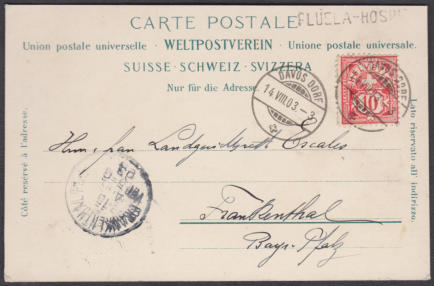 CARTE POSTALE
FLÜELA-HOSPIZ
Union postale universelle · WELTPOSTVEREIN · Unione postale universale.
SUISSE · SCHWEIZ · SVIZZERA
Nur für die Adresse.
DAVOS DORF
14.VIII.03.-3
HELVETIA
10
Côté réservé à l'adresse.
Lato riservato all' indirizzo.
FRANKENTHAL
Frankenthal
Bayr. Pfalz